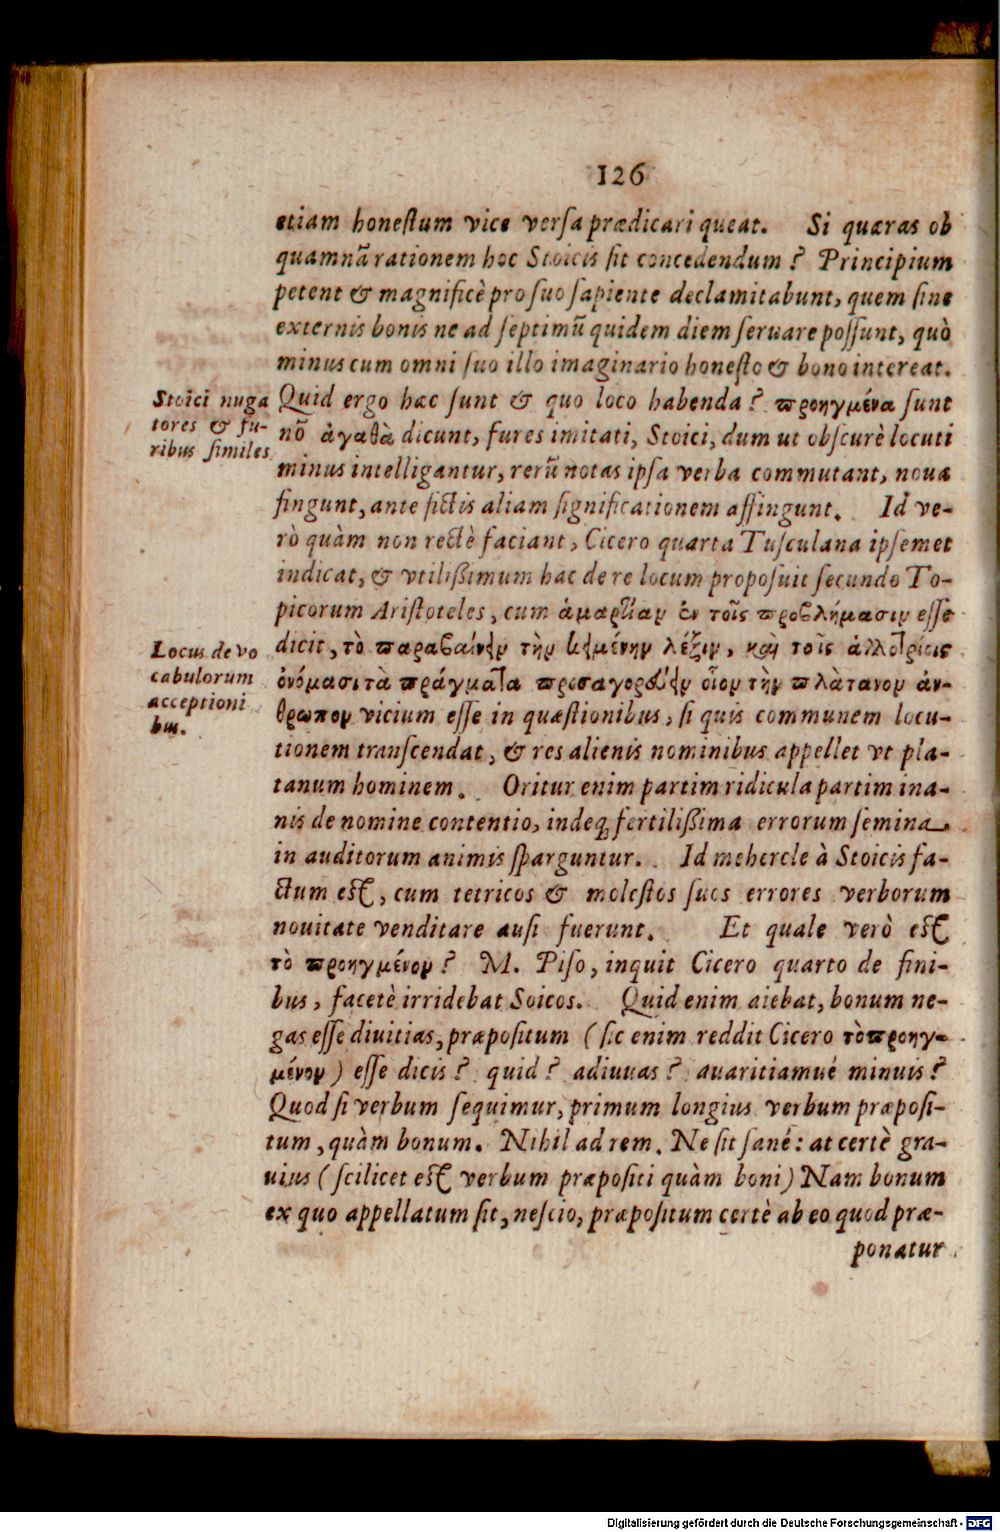 126
etiam honeſtum vice verſa prædicari queat. Si quæras ob
quamnã rationem hoc Stoicis ſit concedendum? Principium
petent & magnificè pro ſuo ſapiente declamitabunt, quem ſine
externis bonis ne ad ſeptimũ quidem diem ſeruare poſſunt, quò
minus cum omni ſuo illo imaginario honeſto & bono intereat.
Stoici nuga
tores & fu-
ribus ſimiles
Quid ergo hæc ſunt & quo loco habenda? προηγμένα ſunt
nõ ἀγαθὰ dicunt, fures imitati, Stoici, dum ut obſcurè locuti
minus intelligantur, rerũ notas ipſa verba commutant, noua
fingunt, ante fictis aliam ſignificationem affingunt. Id ve-
rò quàm non rectè faciant, Cicero quarta Tuſculana ipſemet
indicat, & vtilißimum hac de re locum propoſuit ſecundo To-
picorum Ariſtoteles, cum ἁμαρτίαν ἐν τοῖς προβλήμασιν eſſe
Locus de vo
cabulorum
acceptioni
bus.
dicit, τὸ παραβαίνειν τὴν κειμένην λέξιν, καὶ τοῖς ἀλλοτρίοις
ὀνόμασι τὰ πράγματα προσαγορεύειν οἷον τὴν πλάτανον ἀν-
θρωπον vicium eſſe in quæſtionibus, ſi quis communem locu-
tionem tranſcendat, & res alienis nominibus appellet vt pla-
tanum hominem. Oritur enim partim ridicula partim ina-
nis de nomine contentio, indeq́; fertilißima errorum ſemina
in auditorum animis ſparguntur. Id mehercle à Stoicis fa-
ctum eſt, cum tetricos & moleſtos ſuos errores verborum
nouitate venditare auſi fuerunt. Et quale verò eſt
τὸ προηγμένον? M. Piſo, inquit Cicero quarto de fini-
bus, facetè irridebat Soicos. Quid enim aiebat, bonum ne-
gas eſſe diuitias, præpoſitum (ſic enim reddit Cicero τὸ προηγ-
μένον) eſſe dicis? quid? adiuuas? auaritiamué minuis?
Quod ſi verbum ſequimur, primum longius verbum præpoſi-
tum, quàm bonum. Nihil ad rem. Ne ſit ſané: at certè gra-
uius (ſcilicet eſt verbum præpoſiti quàm boni) Nam bonum
ex quo appellatum ſit, neſcio, præpoſitum certè ab eo quod præ-
ponatur
Digitalisierung gefördert durch die Deutsche Forschungsgemeinschaft - DFG